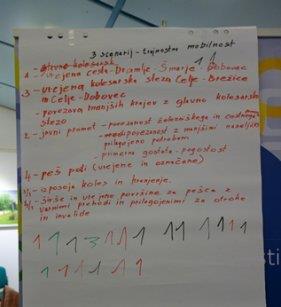 3 scenarij - trajnostna mobilnost
1 1
1 - urejena cesta - Dramlje - Šmarje - Dobovec
3 - urejena kolesarska steza Celje - Brežice
in Celje - Dobovec
- povezava manjših krajev z glavno kolesarsko
stezo
2 - javni promet - povezanost železniškega in cestnega
- medpovezanost z manjšimi naselji
prilagojeno potrebam
- primerna gostota - pogostost
4 - peš poti (urejene in označene)
- izposoja koles in hranjenje
- širše in urejene površine za pešce z
varnimi prehodi in prilagojenimi za otroke
in invalide
1 1 1 3 1 1 1 1 1 1 1 1 1
1 1 1 1 1 1
sti